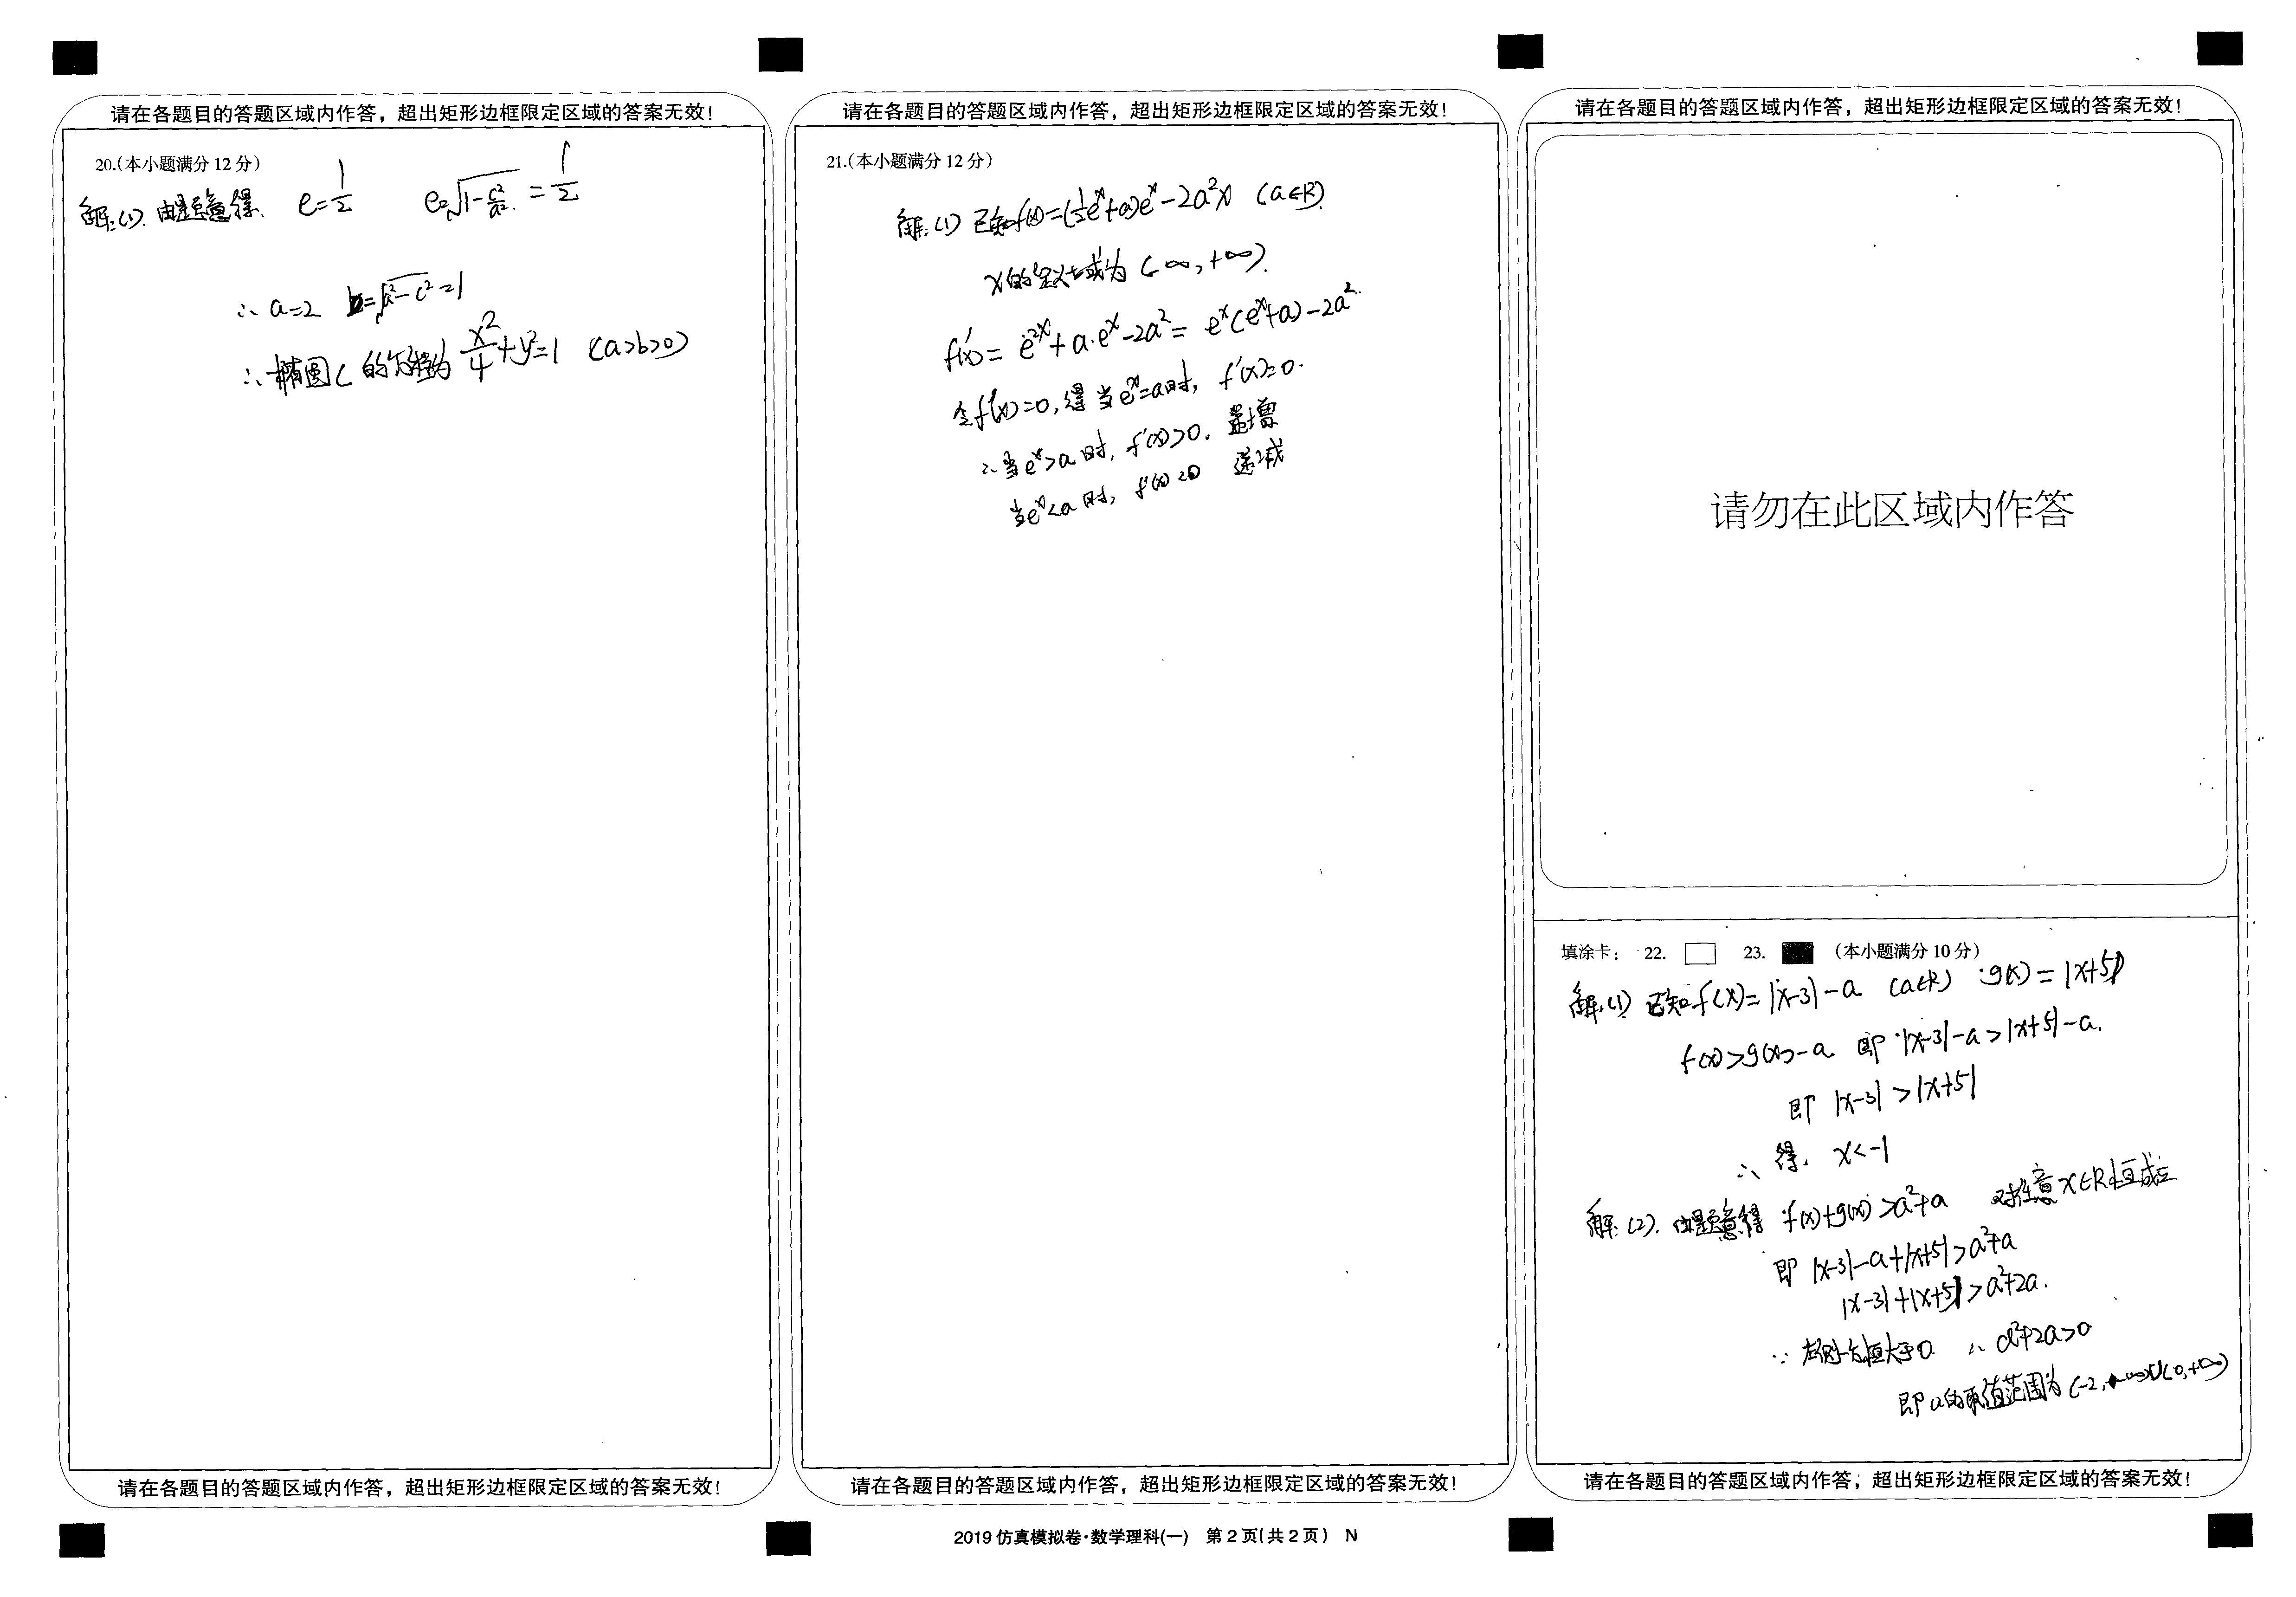 请在各题目的答题区域内作答，超出矩形边框限定区域的答案无效！
20.（本小题满分12分）
解：(1). 由题意得. e=1/2 e=√(1-c²/a²)=1/2
∴ a=2 b=√(a²-c²)=1
∴ 椭圆C的方程为 x²/4+y²=1 (a>b>0)
请在各题目的答题区域内作答，超出矩形边框限定区域的答案无效！
请在各题目的答题区域内作答，超出矩形边框限定区域的答案无效！
21.（本小题满分12分）
解：(1) 已知f(x)=(1/2eˣ+a)eˣ-2a²x (a∈R).
x的定义域为(-∞,+∞).
f'(x)=e²ˣ+a·eˣ-2a²=eˣ(eˣ+a)-2a²
令f'(x)=0,得当eˣ=a时, f'(x)=0.
∴当eˣ>a时, f'(x)>0. 递增
当eˣ<a时, f'(x)<0 递减
请在各题目的答题区域内作答，超出矩形边框限定区域的答案无效！
2019仿真模拟卷·数学理科(一) 第2页(共2页) N
请在各题目的答题区域内作答，超出矩形边框限定区域的答案无效！
请勿在此区域内作答
填涂卡： 22. 23. （本小题满分10分）
解：(1) 已知f(x)=|x-3|-a (a∈R) g(x)=|x+5|
f(x)>g(x)-a 即|x-3|-a>|x+5|-a.
即 |x-3|>|x+5|
∴ 得. x<-1
解：(2). 由题意得 f(x)+g(x)>a²+a 对任意x∈R恒成立
即 |x-3|-a+|x+5|>a²+a
|x-3|+|x+5|>a²+2a.
∵ 左侧恒大于0 ∴ a²+2a>0
即a的取值范围为(-2,-∞)∪(0,+∞)
请在各题目的答题区域内作答，超出矩形边框限定区域的答案无效！